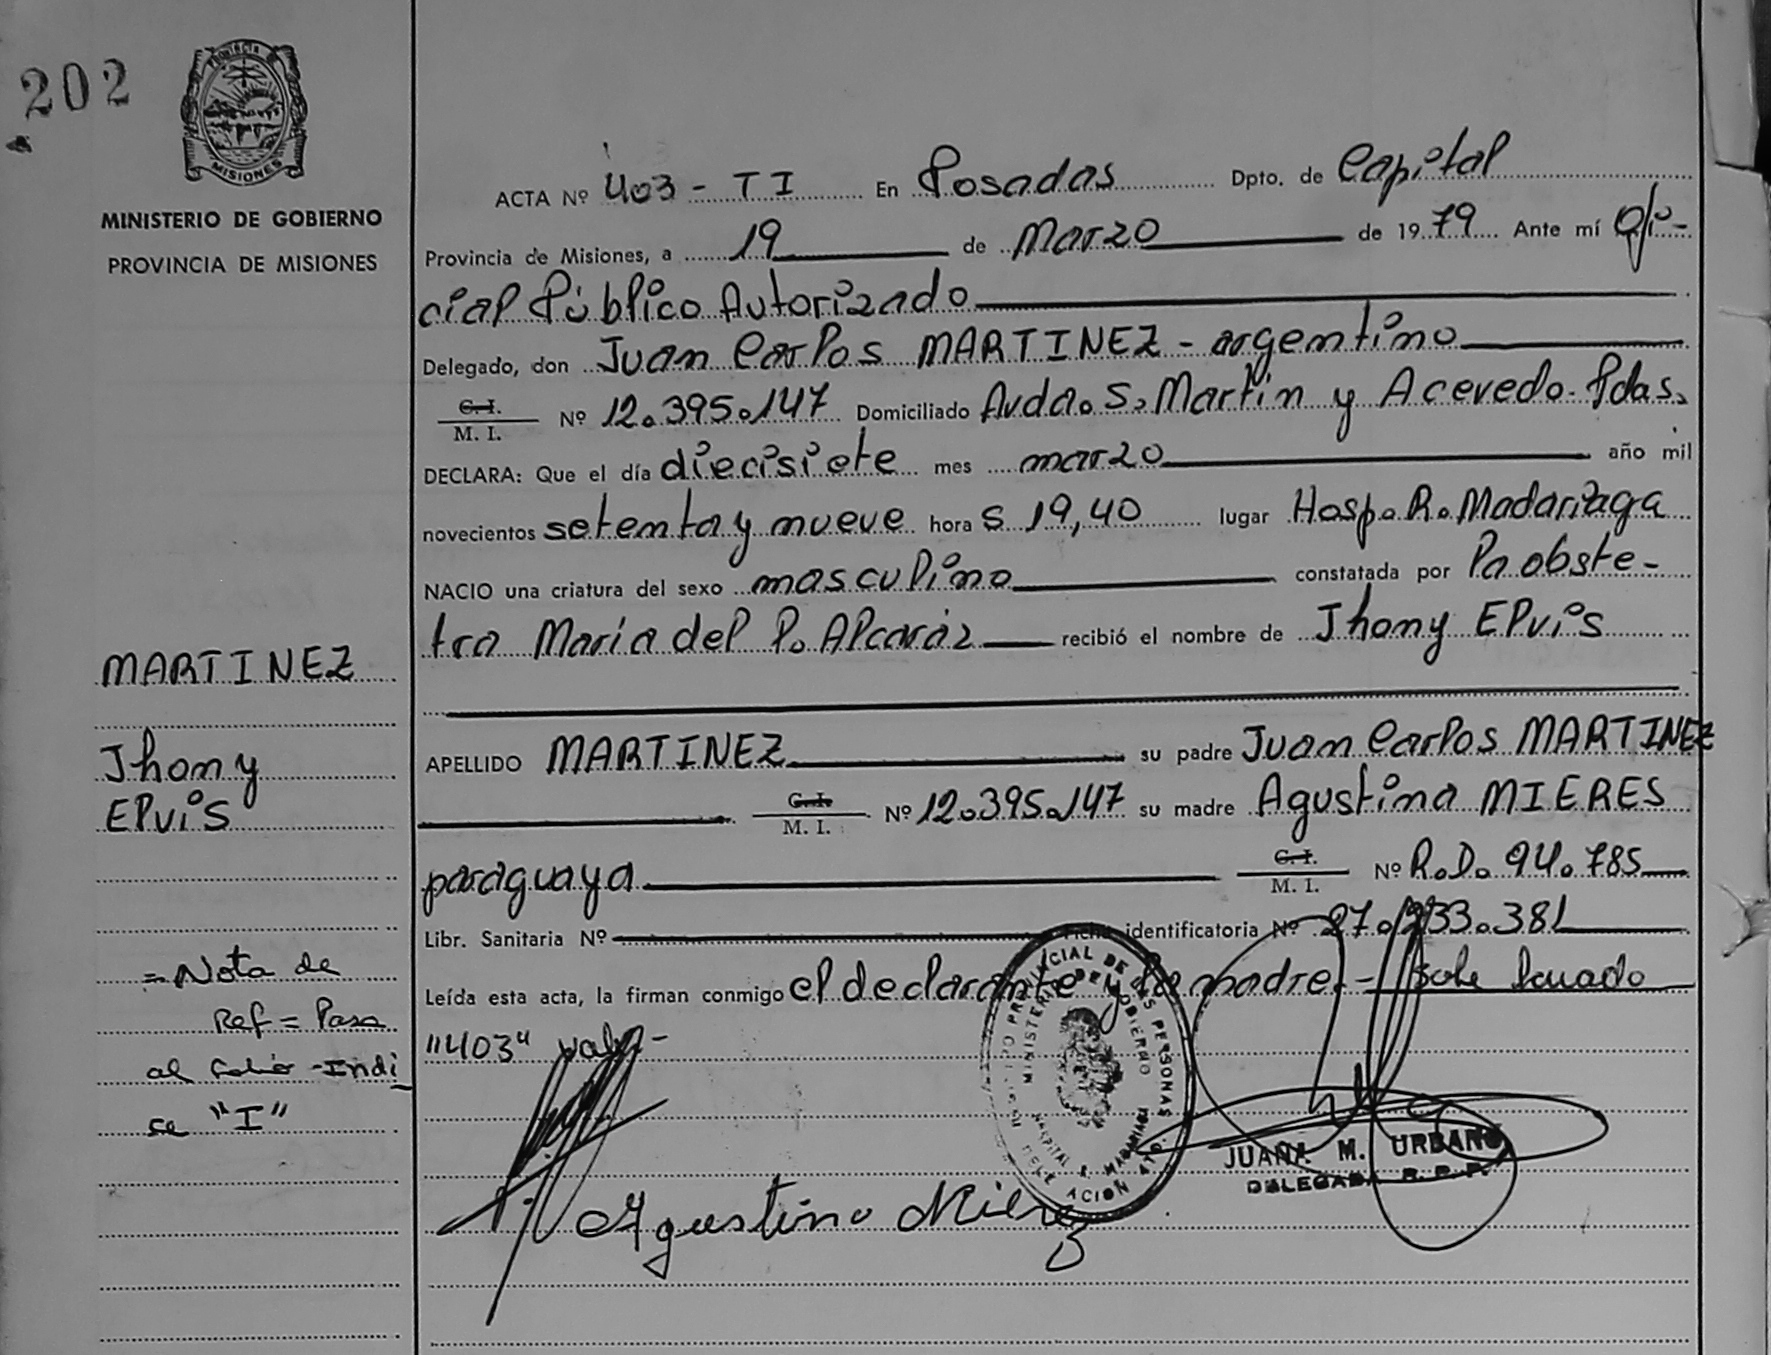 202
PROVINCIA
MISIONES
MINISTERIO DE GOBIERNO
PROVINCIA DE MISIONES
MARTINEZ
Jhony
Elvis
= Nota de
Ref = Pasa
al Folio - Indi
se "I"
ACTA Nº 403 - TI En Posadas Dpto. de Capital
Provincia de Misiones, a 19 de Marzo de 1979 Ante mí Ofi-
cial Público Autorizado
Delegado, don Juan Carlos MARTINEZ - argentino
C. I. / M. I. Nº 12.395.147 Domiciliado Avda. S. Martín y Acevedo. Pdas.
DECLARA: Que el día diecisiete mes marzo año mil
novecientos setenta y nueve hora s 19,40 lugar Hosp. R. Madariaga
NACIO una criatura del sexo masculino constatada por la obste-
tra María del P. Alcaráz recibió el nombre de Jhony Elvis
APELLIDO MARTINEZ su padre Juan Carlos MARTINEZ
C. I. / M. I. Nº 12.395.147 su madre Agustina MIERES
paraguaya C. I. / M. I. Nº R.D. 94.785
Libr. Sanitaria Nº Ficha identificatoria Nº 27.233.381
Leída esta acta, la firman conmigo el declarante y la madre. - Sobre
"403" vale -
Agustina Mierez
JUANA M. URBANO
DELEGADA R. P. P.